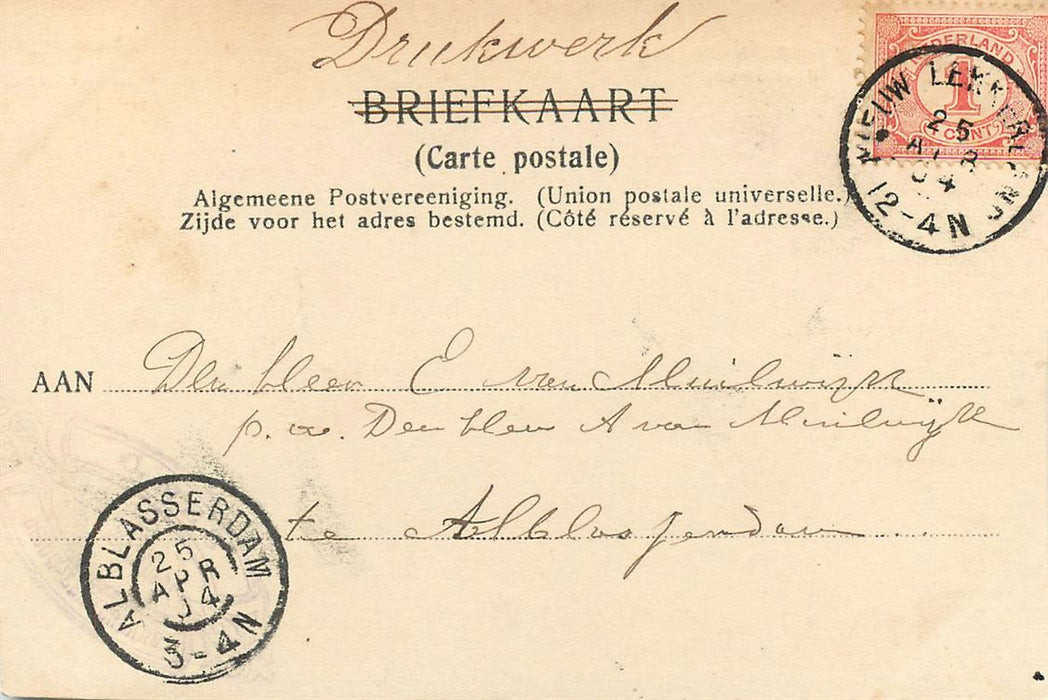 Drukwerk
BRIEFKAART
(Carte postale)
Algemeene Postvereeniging. (Union postale universelle.)
Zijde voor het adres bestemd. (Côté réservé à l'adresse.)
NEDERLAND
1
CENT
NIEUW LEKKERLAND
25
APR
04
12-4N
AAN Den Heer E van Muilwijk
p. a. Den Heer A van Muilwijk
te Alblasserdam
ALBLASSERDAM
25
APR
04
3-4N